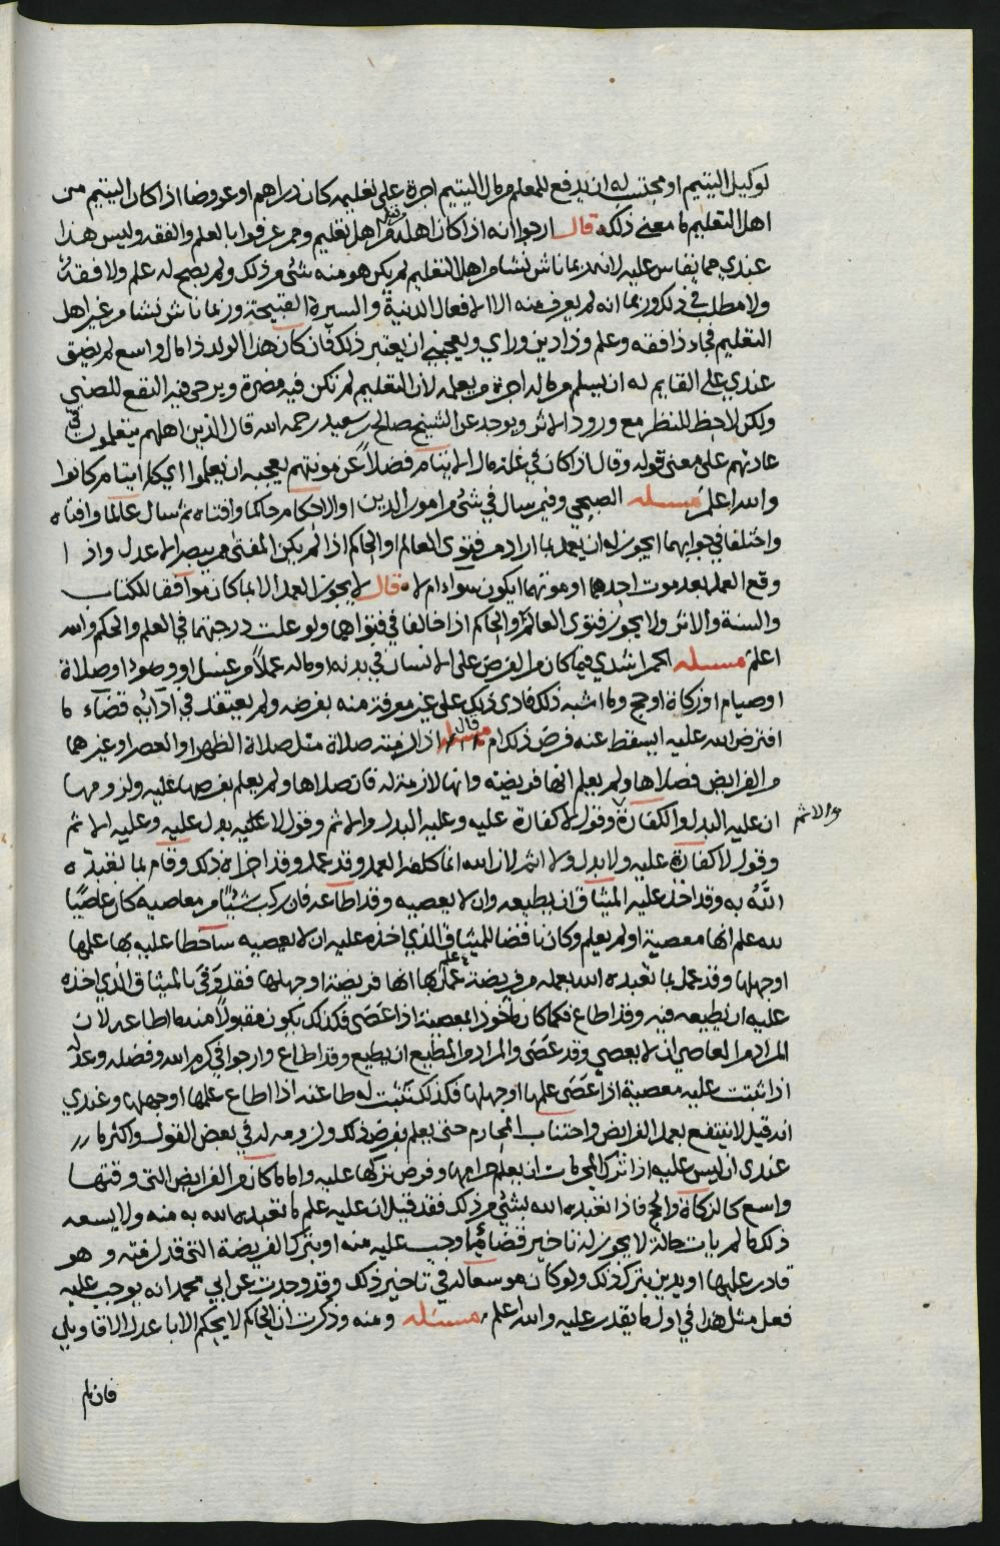 لوكيل اليتيم او محتسب له ان يدفع للمعلم من مال اليتيم اجرة على تعليمه كان دراهم او عروضا اذا كان اليتيم من
اهل التعليم ما معنى ذلك قال ارجوا انه اذا كان اهله قبله من اهل تعليم وممن عرفوا بالعلم والفقه وليس هذا
عندي مما يقاس عليه لانه ربما ناش نشا من اهل التعليم لم يكن هو منه شئ من ذلك ولم يصح له علم ولا فقه
ولا مطلب في ذلك وربما انه لم يعرف منه الا الافعال الدنية والسيرة القبيحة وربما ناش نشا من غير اهل
التعليم فجاء ذا فقه وعلم وذا دين وراي ويعجبني ان يعتبر ذلك فان كان هذا الولد ذا مال واسع لم يضق
عندي على القايم له ان يسلم من ماله اجرة من يعلمه لان التعليم لم تكن فيه مضرة ويرجى فيه النفع للصبي
ولكن لا حظ للنظر مع ورود الاثر ويوجد عن الشيخ صالح بن سعيد رحمه الله قال الذين اهلهم يتعلمون في
عادتهم على معنى قوله وقال اذا كان في غلة مال الايتام فضلاً عن مونتهم يعجبه ان يعلموا اي كل ايتام كانوا
والله اعلم مسئله الصبحي وفيمن سال في شئ من امور الدين او الاحكام حاكما وافتاه ثم سال عالما وافتاه
واختلفا في جوابهما ايجوز له ان يعمل بما اراد من فتوى العالم او الحاكم اذا لم يكن المفتى ممن يبصر الاعدل واذا
وقع العمل بعد موت احدهما او موتهما ايكون سواء ام لا قال لا يجوز العمل الا بما كان موافقا للكتاب
والسنة والاثر ولا يجوز فتوى العالم والحاكم اذا خالفا في فتواهما ولو علت درجتهما في العلم والحكم والله
اعلم مسئله الحمراشدي فيما كان من الفرض على الانسان في بدنه او ماله عملاً من غسل او وضوء او صلاة
او صيام او زكاة او حج وما اشبه ذلك فادى ذلك على غير معرفة منه بفرضه ولم يعتقد في ادآئه قضآء ما
افترض الله عليه ايسقط عنه فرض ذلك ام لا قال اذا لزمته صلاة مثل صلاة الظهر او العصر او غيرهما
من الفرايض فصلاها ولم يعلم انها فريضة وانها لازمة له فان صلاها ولم يعلم بفرضها عليه ولزومها
ان عليه البدل والكفارة وقول لا كفارة عليه وعليه البدل والاثم وقول لا عليه بدل عليه وعليه الاثم
والاثم
وقول لا كفارة عليه ولا بدل ولا اثم لان الله انما كلفه العمل وقد عمل وقد اجزاه ذلك وقام بما تعبده
اللّٰه به وقد اخذ عليه الميثاق ان يطيعه وان لا يعصيه وقد اطاعه فان ركب شيئا من معاصيه كان عاصيًا
لله علم انها معصية او لم يعلم وكان ناقضا للميثاق الذي اخذه عليه ان لا يعصيه ساخطا عليه بها علمها
او جهلها وقد عمل بما تعبده الله بعمله من فريضة علم بها انها فريضة او جهلها فقد وَفَى بالميثاق الذي اخذه
عليه ان يطيعه فيه وقد اطاع فكما كان ماخوذا بالمعصية اذا عَصَى فكذلك يكون مقبولاً منه ما اطاعه لان
المراد من العاصي ان لا يعصي وقد عَصَى والمراد من المطيع ان يطيع وقد اطاع وارجوا في كرم الله وفضله وعدله
اذا ثبتت عليه معصية اذا عَصَى علمها او جهلها فكذلك تثبت له طاعته اذا اطاع علمها او جهلها وعندي
انه قيل لا ينتفع بعمل الفرايض واجتناب المحارم حتى يعلم بفرض ذلك ولزومه له في بعض القول واكثر ما
عندي ان ليس عليه اذا ترك المحرمات ان يعلم حرامها وفرض تركها عليه واما ما كان من الفرايض التي وقتها
واسع كالزكاة والحج فاذا تعبده الله بشئ من ذلك فقد قيل ان عليه علم ما تعبده الله به منه ولا يسعه
ذلك ما لم يات حالة لا يجوز له تاخير قضائه ما وجب عليه منه او يترك الفريضة التي قد لزمته وهو
قادر عليها او يدين بترك ذلك ولو كان موسعا له في تاخير ذلك وقد وجدت عن ابي محمد انه يوجب عليه
فعل مثل هذا في اول ما يقدر عليه والله اعلم مسئله ومنه وذكرت ان الحاكم لا يحكم الا باعدل الاقاويل
فان لم